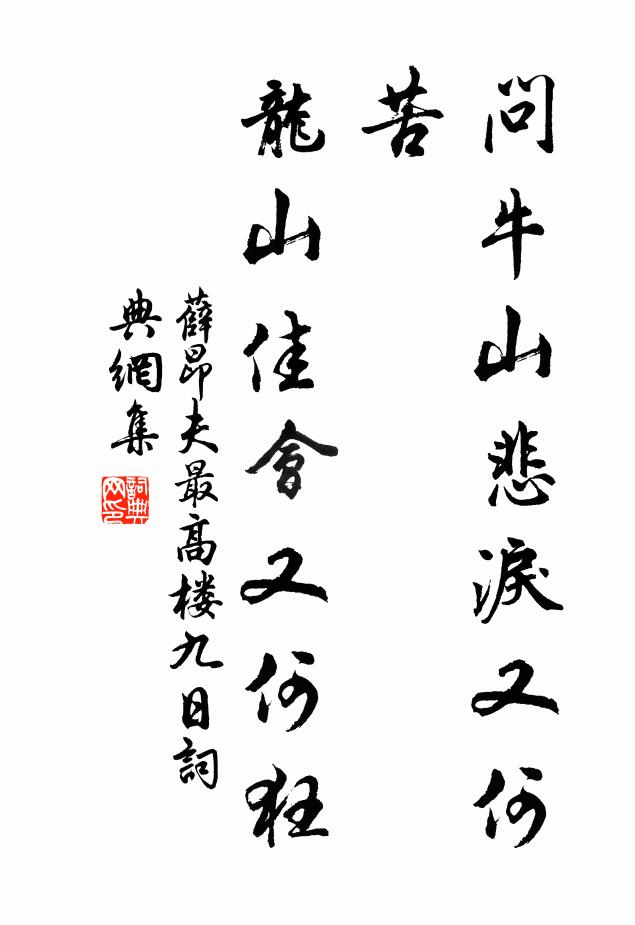 問牛山悲淚又何
苦
龍山佳會又何狂
薛昂夫最高楼九日詞
典網集
詞典
网印